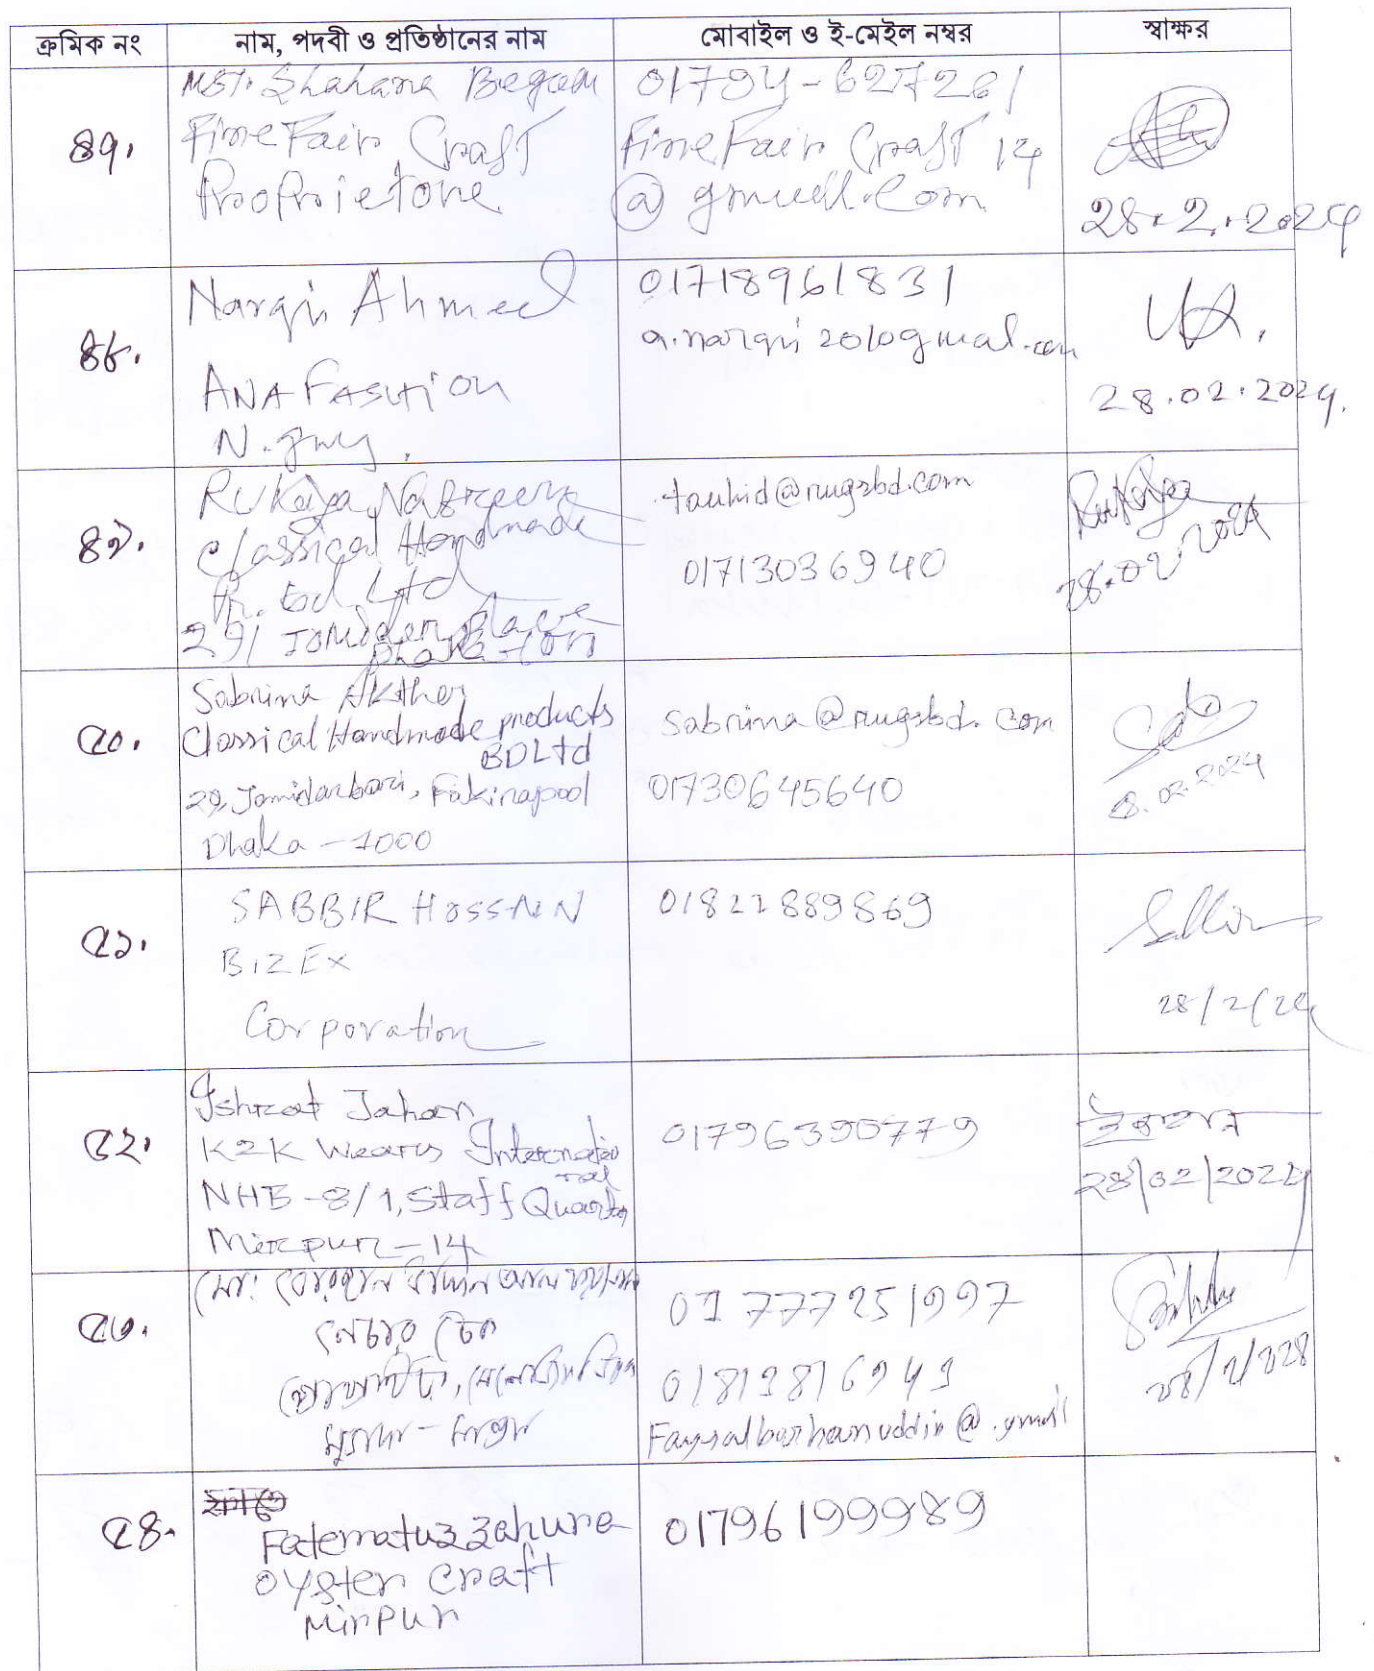 ক্রমিক নং নাম, পদবী ও প্রতিষ্ঠানের নাম মোবাইল ও ই-মেইল নম্বর স্বাক্ষর
৪৭.
MST. Shahana Begum
Fine Fair Craft
Proprietone
01794-627261
Fine Fair Craft 14
@ gmail.com
28.2.2024
৪৮.
Nargis Ahmed
ANA FASHION
01718961831
28.02.2024.
৪৯.
Rukaya Nasreen
Classical Handmade
Pr. Bd Ltd
29/
tauhid@rugsbd.com
01713036940
Rukaya
28.02.2024
৫০.
Sabrina Akther
Classical Handmade products
BD Ltd
29, Jamidarbari, Fakirapool
Dhaka - 1000
sabrina@rugsbd.com
01730645640
৫১.
SABBIR HOSSAIN
BIZEX
Corporation
01822889869
28/2/24
৫২.
Ishrat Jahan
K2K Wears Internatio
nal
NHB-3/1, Staff Quarter
Mirpur-14
01796390779
28/02/2024
৫৩.
01777251997
Faysalburhanuddin@.gmail
৫৪.
Fatematuzzahura
Oyster Craft
Mirpur
01796199989